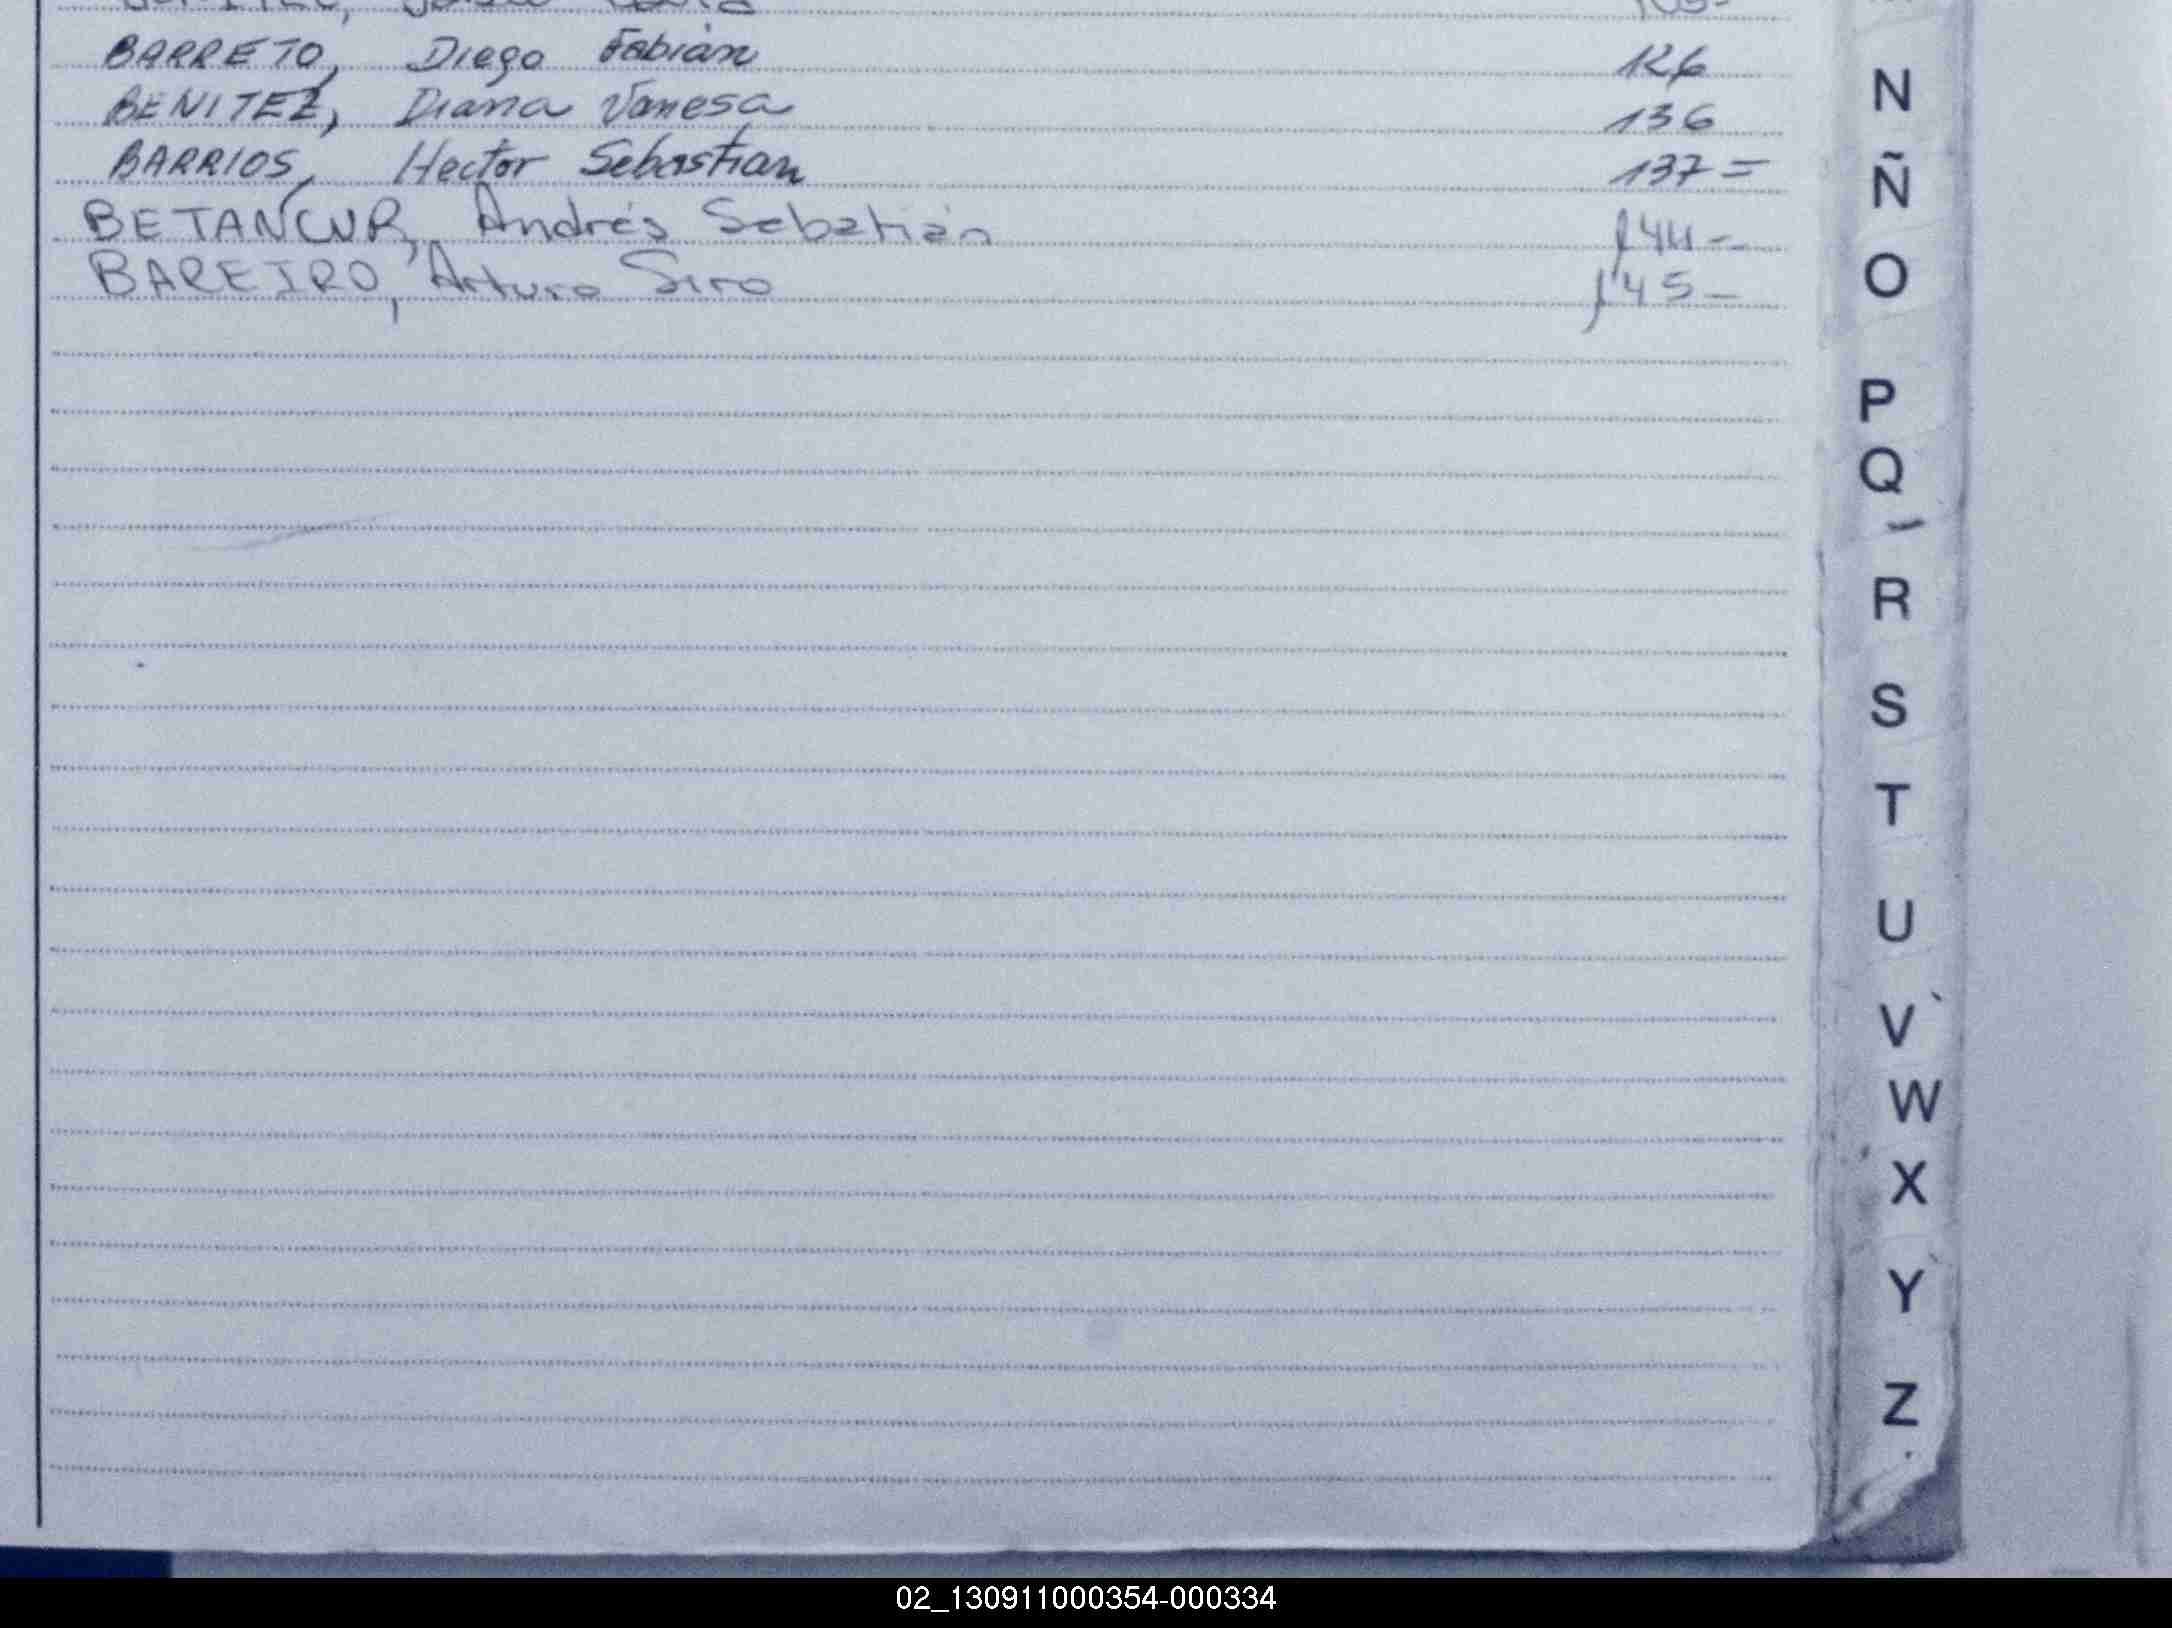 BARRETO, Diego Fabián 126
BENITEZ, Diana Vanesa 136
BARRIOS, Hector Sebastian 137=
BETANCUR, Andrés Sebatián 144-
BAREIRO, Arturo Siro 145-
N
Ñ
O
P
Q
R
S
T
U
V
W
X
Y
Z
02_130911000354-000334